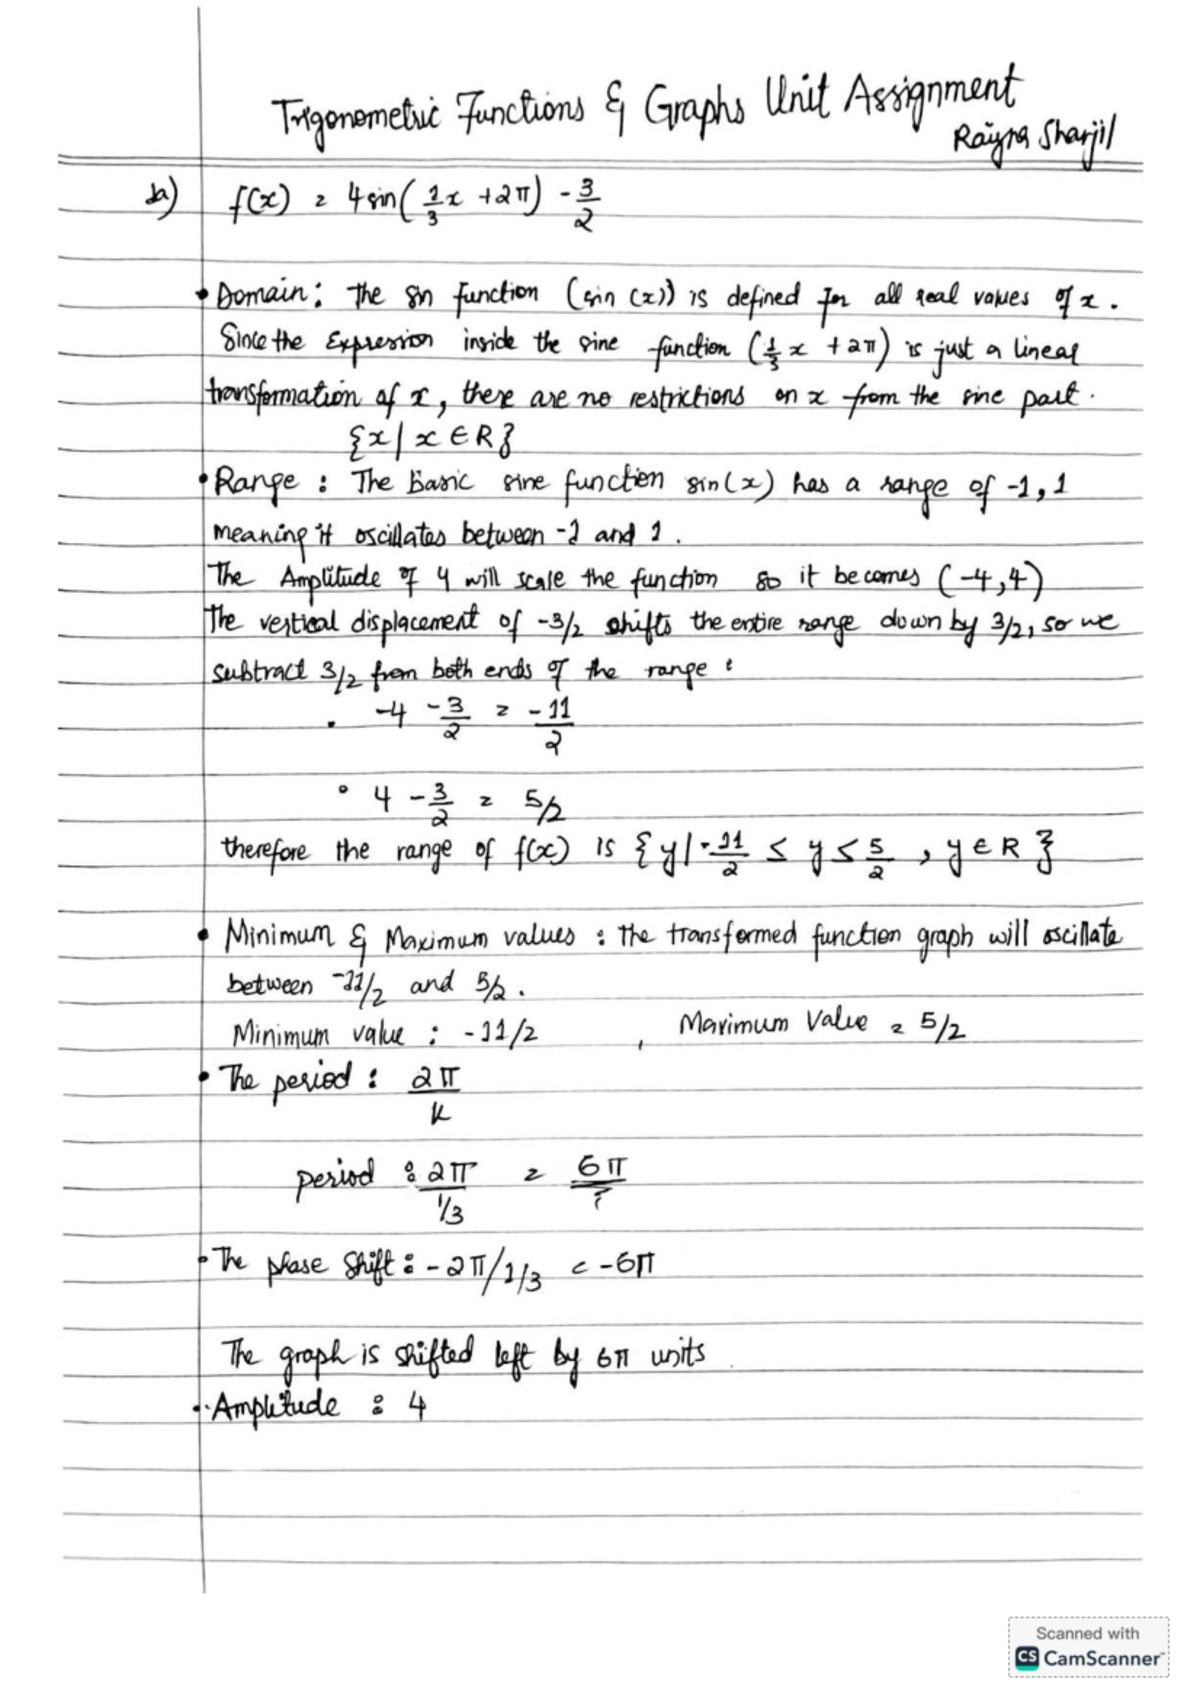 Trigonometric Functions & Graphs Unit Assignment
Rayna Sharjil
1a) f(x) = 4sin(1/3x +2π) - 3/2
• Domain: The sin function (sin (x)) is defined for all real values of x.
Since the Expression inside the sine function (1/3 x + 2π) is just a linear
transformation of x, there are no restrictions on x from the sine part.
{x| x ∈ R}
• Range : The Basic sine function sin(x) has a range of -1, 1
meaning it oscillates between -1 and 1.
The Amplitude of 4 will scale the function so it becomes (-4,4)
The vertical displacement of -3/2 shifts the entire range down by 3/2, so we
subtract 3/2 from both ends of the range :
• -4 - 3/2 = -11/2
• 4 - 3/2 = 5/2
therefore the range of f(x) is { y| -11/2 ≤ y ≤ 5/2 , y ∈ R }
• Minimum & Maximum values : the transformed function graph will oscillate
between -11/2 and 5/2.
Minimum value : -11/2 , Maximum Value = 5/2
• The period : 2π/k
period : 2π/1/3 = 6π
• The phase Shift : - 2π/1/3 = -6π
The graph is shifted left by 6π units
• Amplitude : 4
Scanned with
CS CamScanner